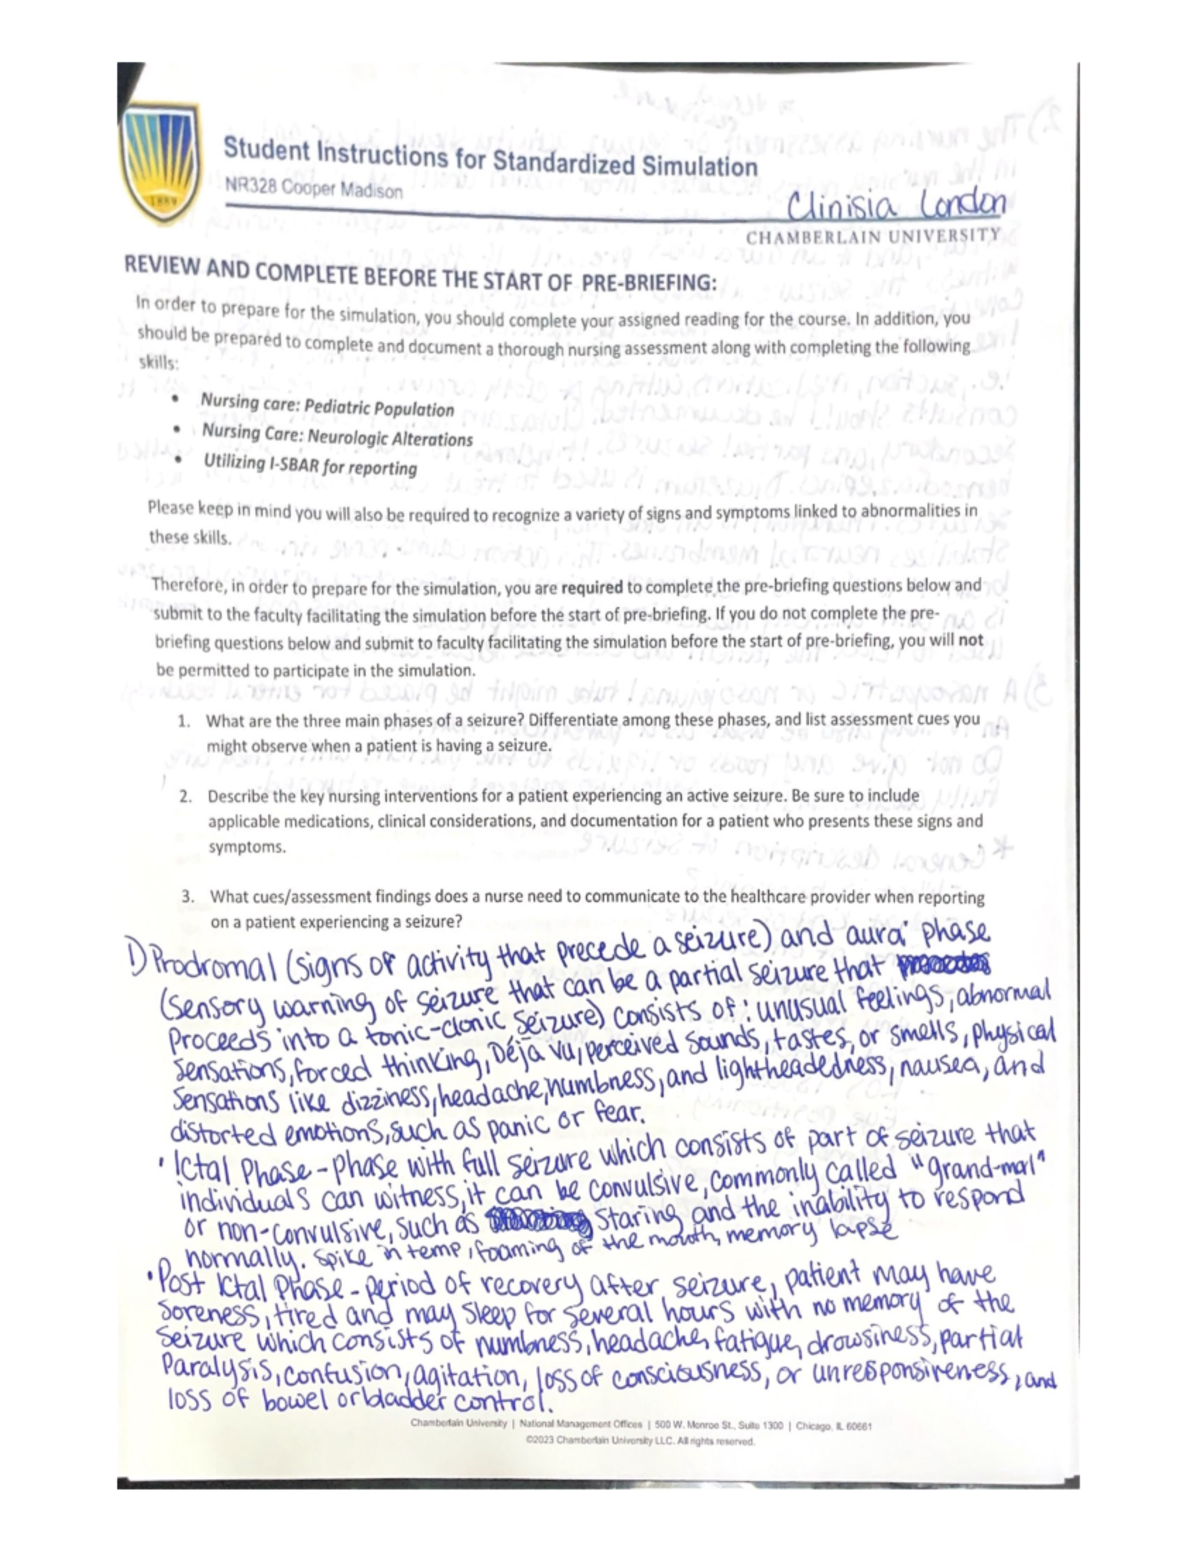 1889
Student Instructions for Standardized Simulation
NR328 Cooper Madison
Clinisia London
CHAMBERLAIN UNIVERSITY
REVIEW AND COMPLETE BEFORE THE START OF PRE-BRIEFING:
In order to prepare for the simulation, you should complete your assigned reading for the course. In addition, you
should be prepared to complete and document a thorough nursing assessment along with completing the following
skills:
• Nursing care: Pediatric Population
• Nursing Care: Neurologic Alterations
• Utilizing I-SBAR for reporting
Please keep in mind you will also be required to recognize a variety of signs and symptoms linked to abnormalities in
these skills.
Therefore, in order to prepare for the simulation, you are required to complete the pre-briefing questions below and
submit to the faculty facilitating the simulation before the start of pre-briefing. If you do not complete the pre-
briefing questions below and submit to faculty facilitating the simulation before the start of pre-briefing, you will not
be permitted to participate in the simulation.
1. What are the three main phases of a seizure? Differentiate among these phases, and list assessment cues you
might observe when a patient is having a seizure.
2. Describe the key nursing interventions for a patient experiencing an active seizure. Be sure to include
applicable medications, clinical considerations, and documentation for a patient who presents these signs and
symptoms.
3. What cues/assessment findings does a nurse need to communicate to the healthcare provider when reporting
on a patient experiencing a seizure?
1) Prodromal (signs or activity that precede a seizure) and aura phase
(sensory warning of seizure that can be a partial seizure that
Proceeds into a tonic-clonic seizure) consists of: unusual feelings, abnormal
sensations, forced thinking, Déja vu, perceived sounds, tastes, or smells, physical
sensations like dizziness, headache, numbness, and lightheadedness, nausea, and
distorted emotions, such as panic or fear.
• Ictal Phase - phase with full seizure which consists of part of seizure that
individuals can witness, it can be convulsive, commonly called "grand-mal"
or non-convulsive, such as staring and the inability to respond
normally. spike in temp, foaming of the mouth, memory lapse
• Post Ictal Phase - period of recovery after seizure, patient may have
soreness, tired and may sleep for several hours with no memory of the
seizure which consists of numbness, headache, fatigue, drowsiness, partial
Paralysis, confusion, agitation, loss of consciousness, or unresponsiveness, and
loss of bowel or bladder control.
Chamberlain University | National Management Offices | 500 W. Monroe St., Suite 1300 | Chicago, IL 60661
©2023 Chamberlain University LLC. All rights reserved.